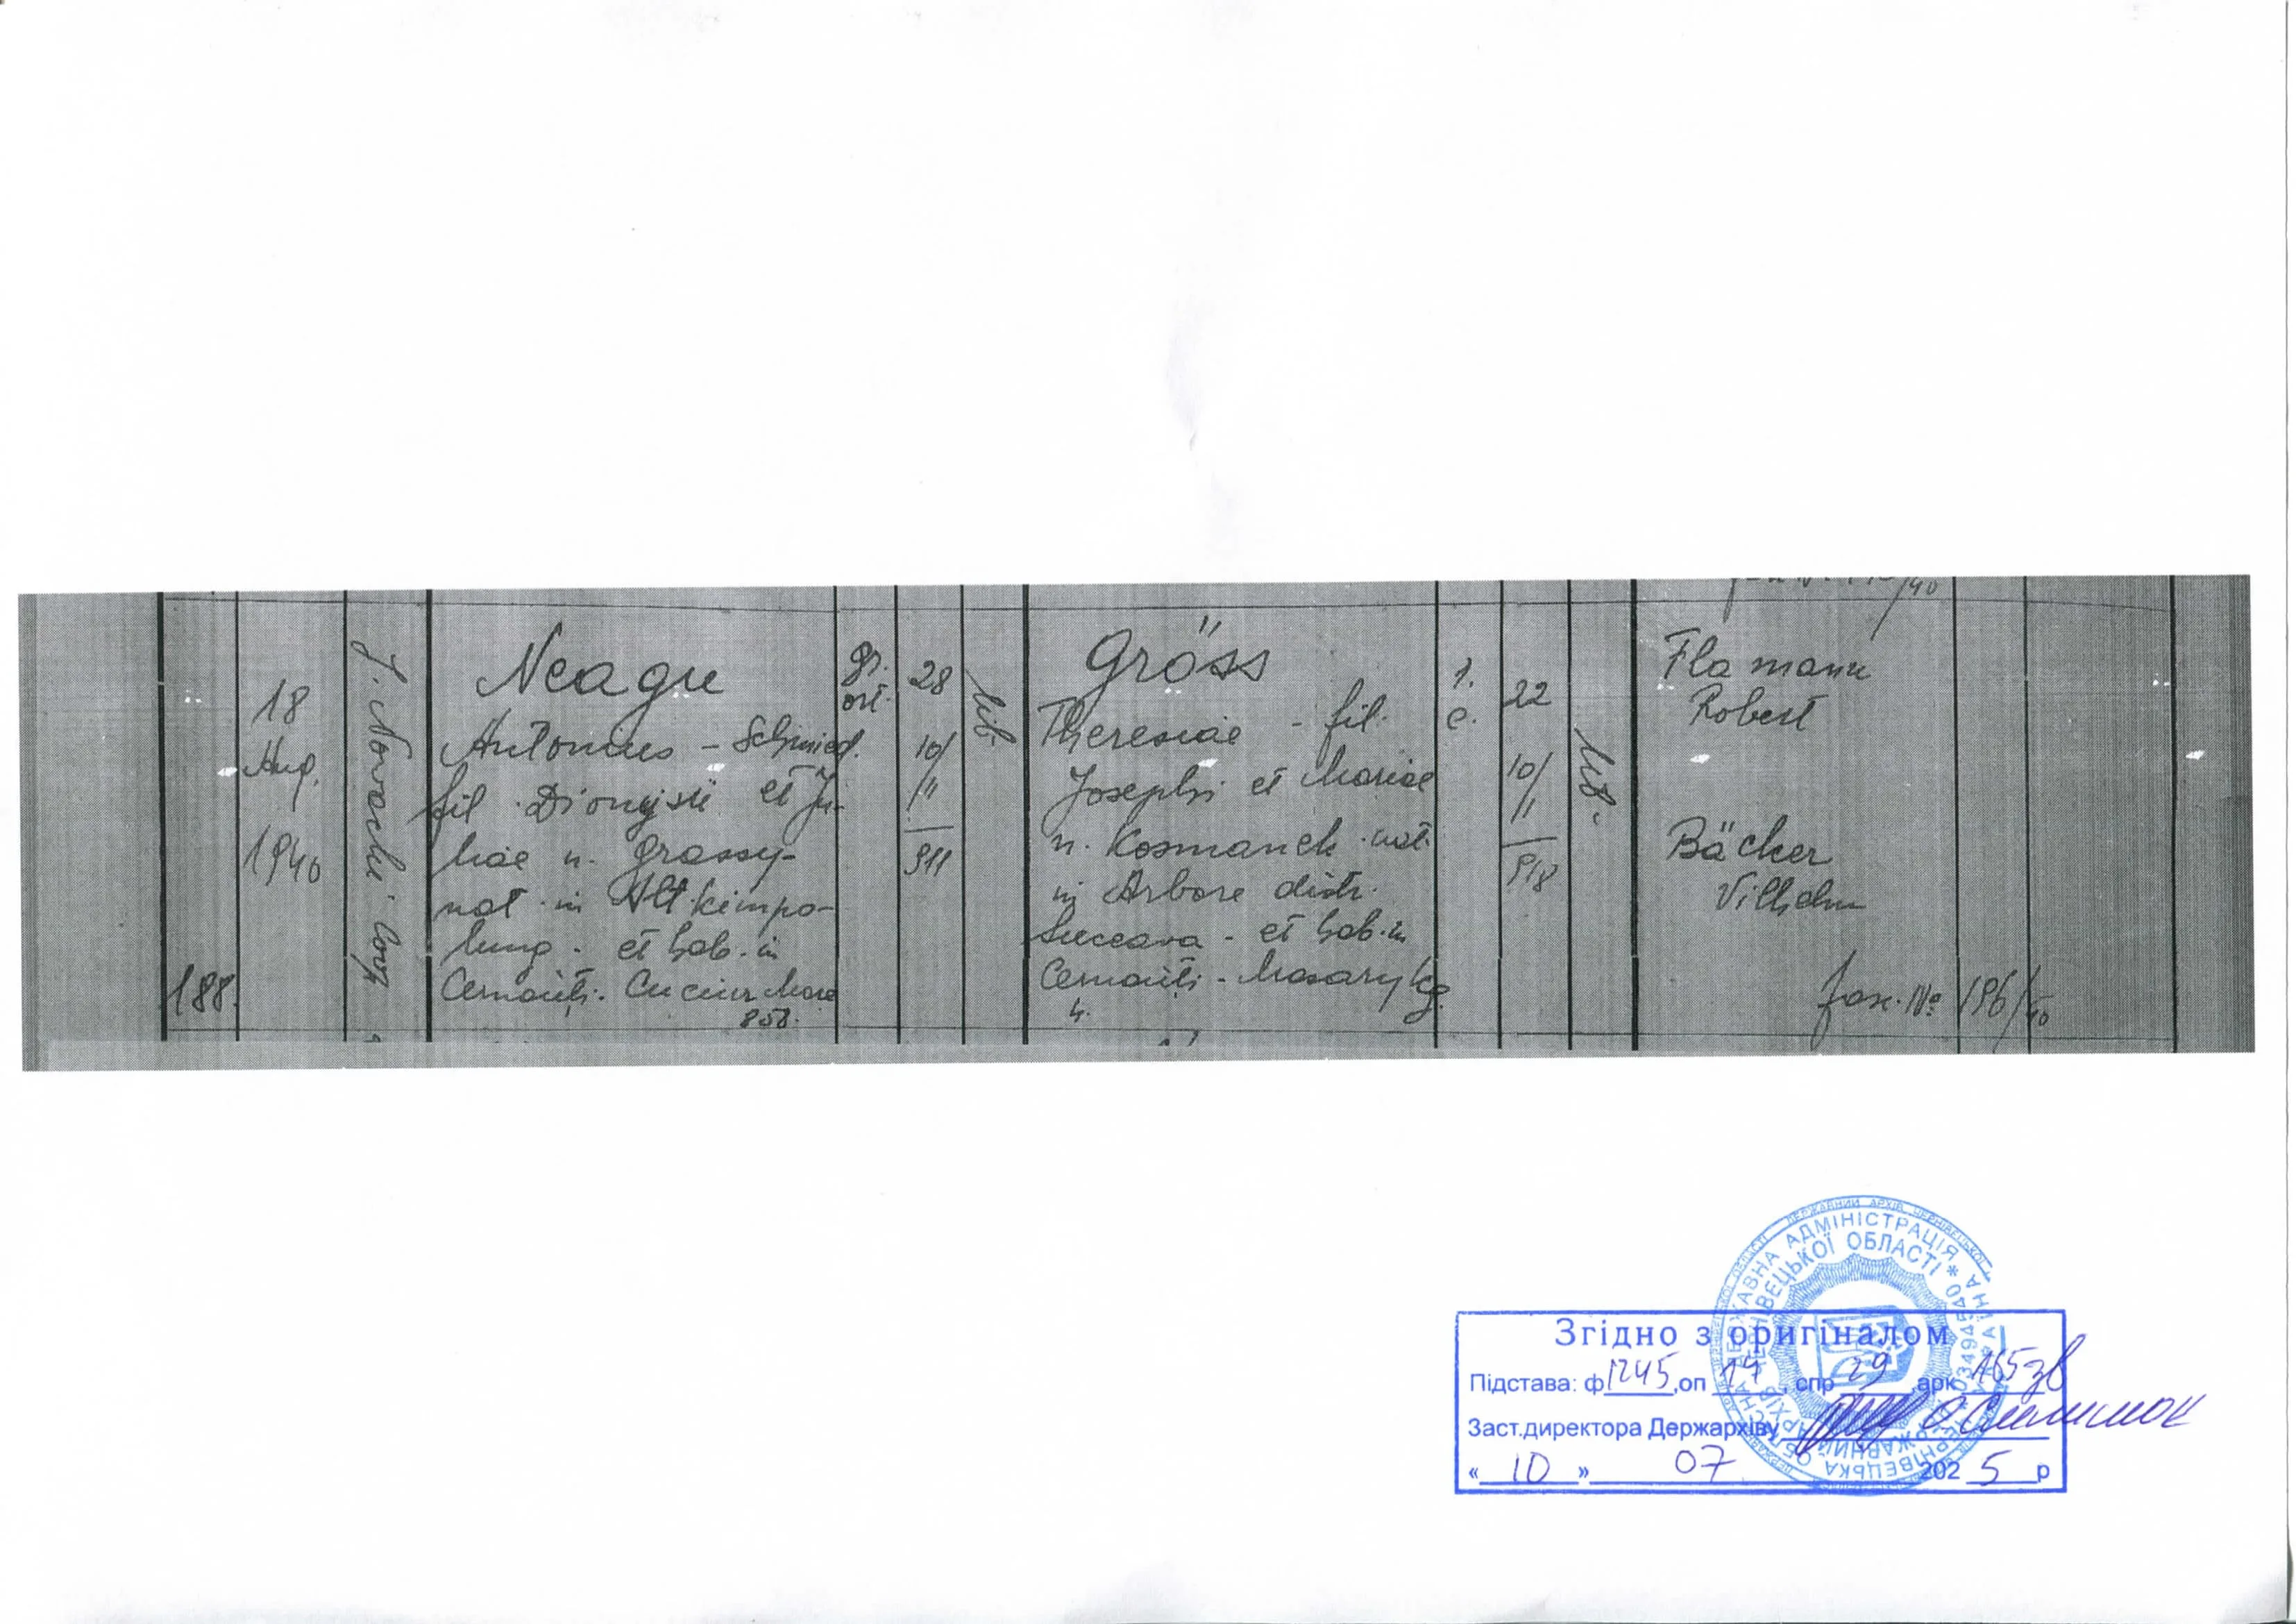 188.
18
Aug.
1940
J. Novacki. Coop
Neagu
Antonius - Schmied.
fil. Dionysii et Ju-
liae n. Grassy-
nat. in Alt kimpo-
lung - et hab. in
Cernăuți. Cuciur Mare
858.
gr.
ort.
28
10/
11
911
lib.
Gröss
Theresiae - fil.
Josephi et Mariae
n. Kosmanek nat.
in Arbore distr.
Suceava - et hab. in
Cernăuți - Masarykg.
4.
r.
c.
22
10/
11
918
lib.
/40
Flamann
Robert
Bäcker
Vilhelm
fasc. No 196/40
Згідно з оригіналом
Підстава: ф 1245, оп 17, спр 29 арк 165зв
Заст.директора Держархіву
« 10 » 07 2025 р
ДЕРЖАВНИЙ АРХІВ ЧЕРНІВЕЦЬКОЇ ОБЛАСТІ * 03494540 *